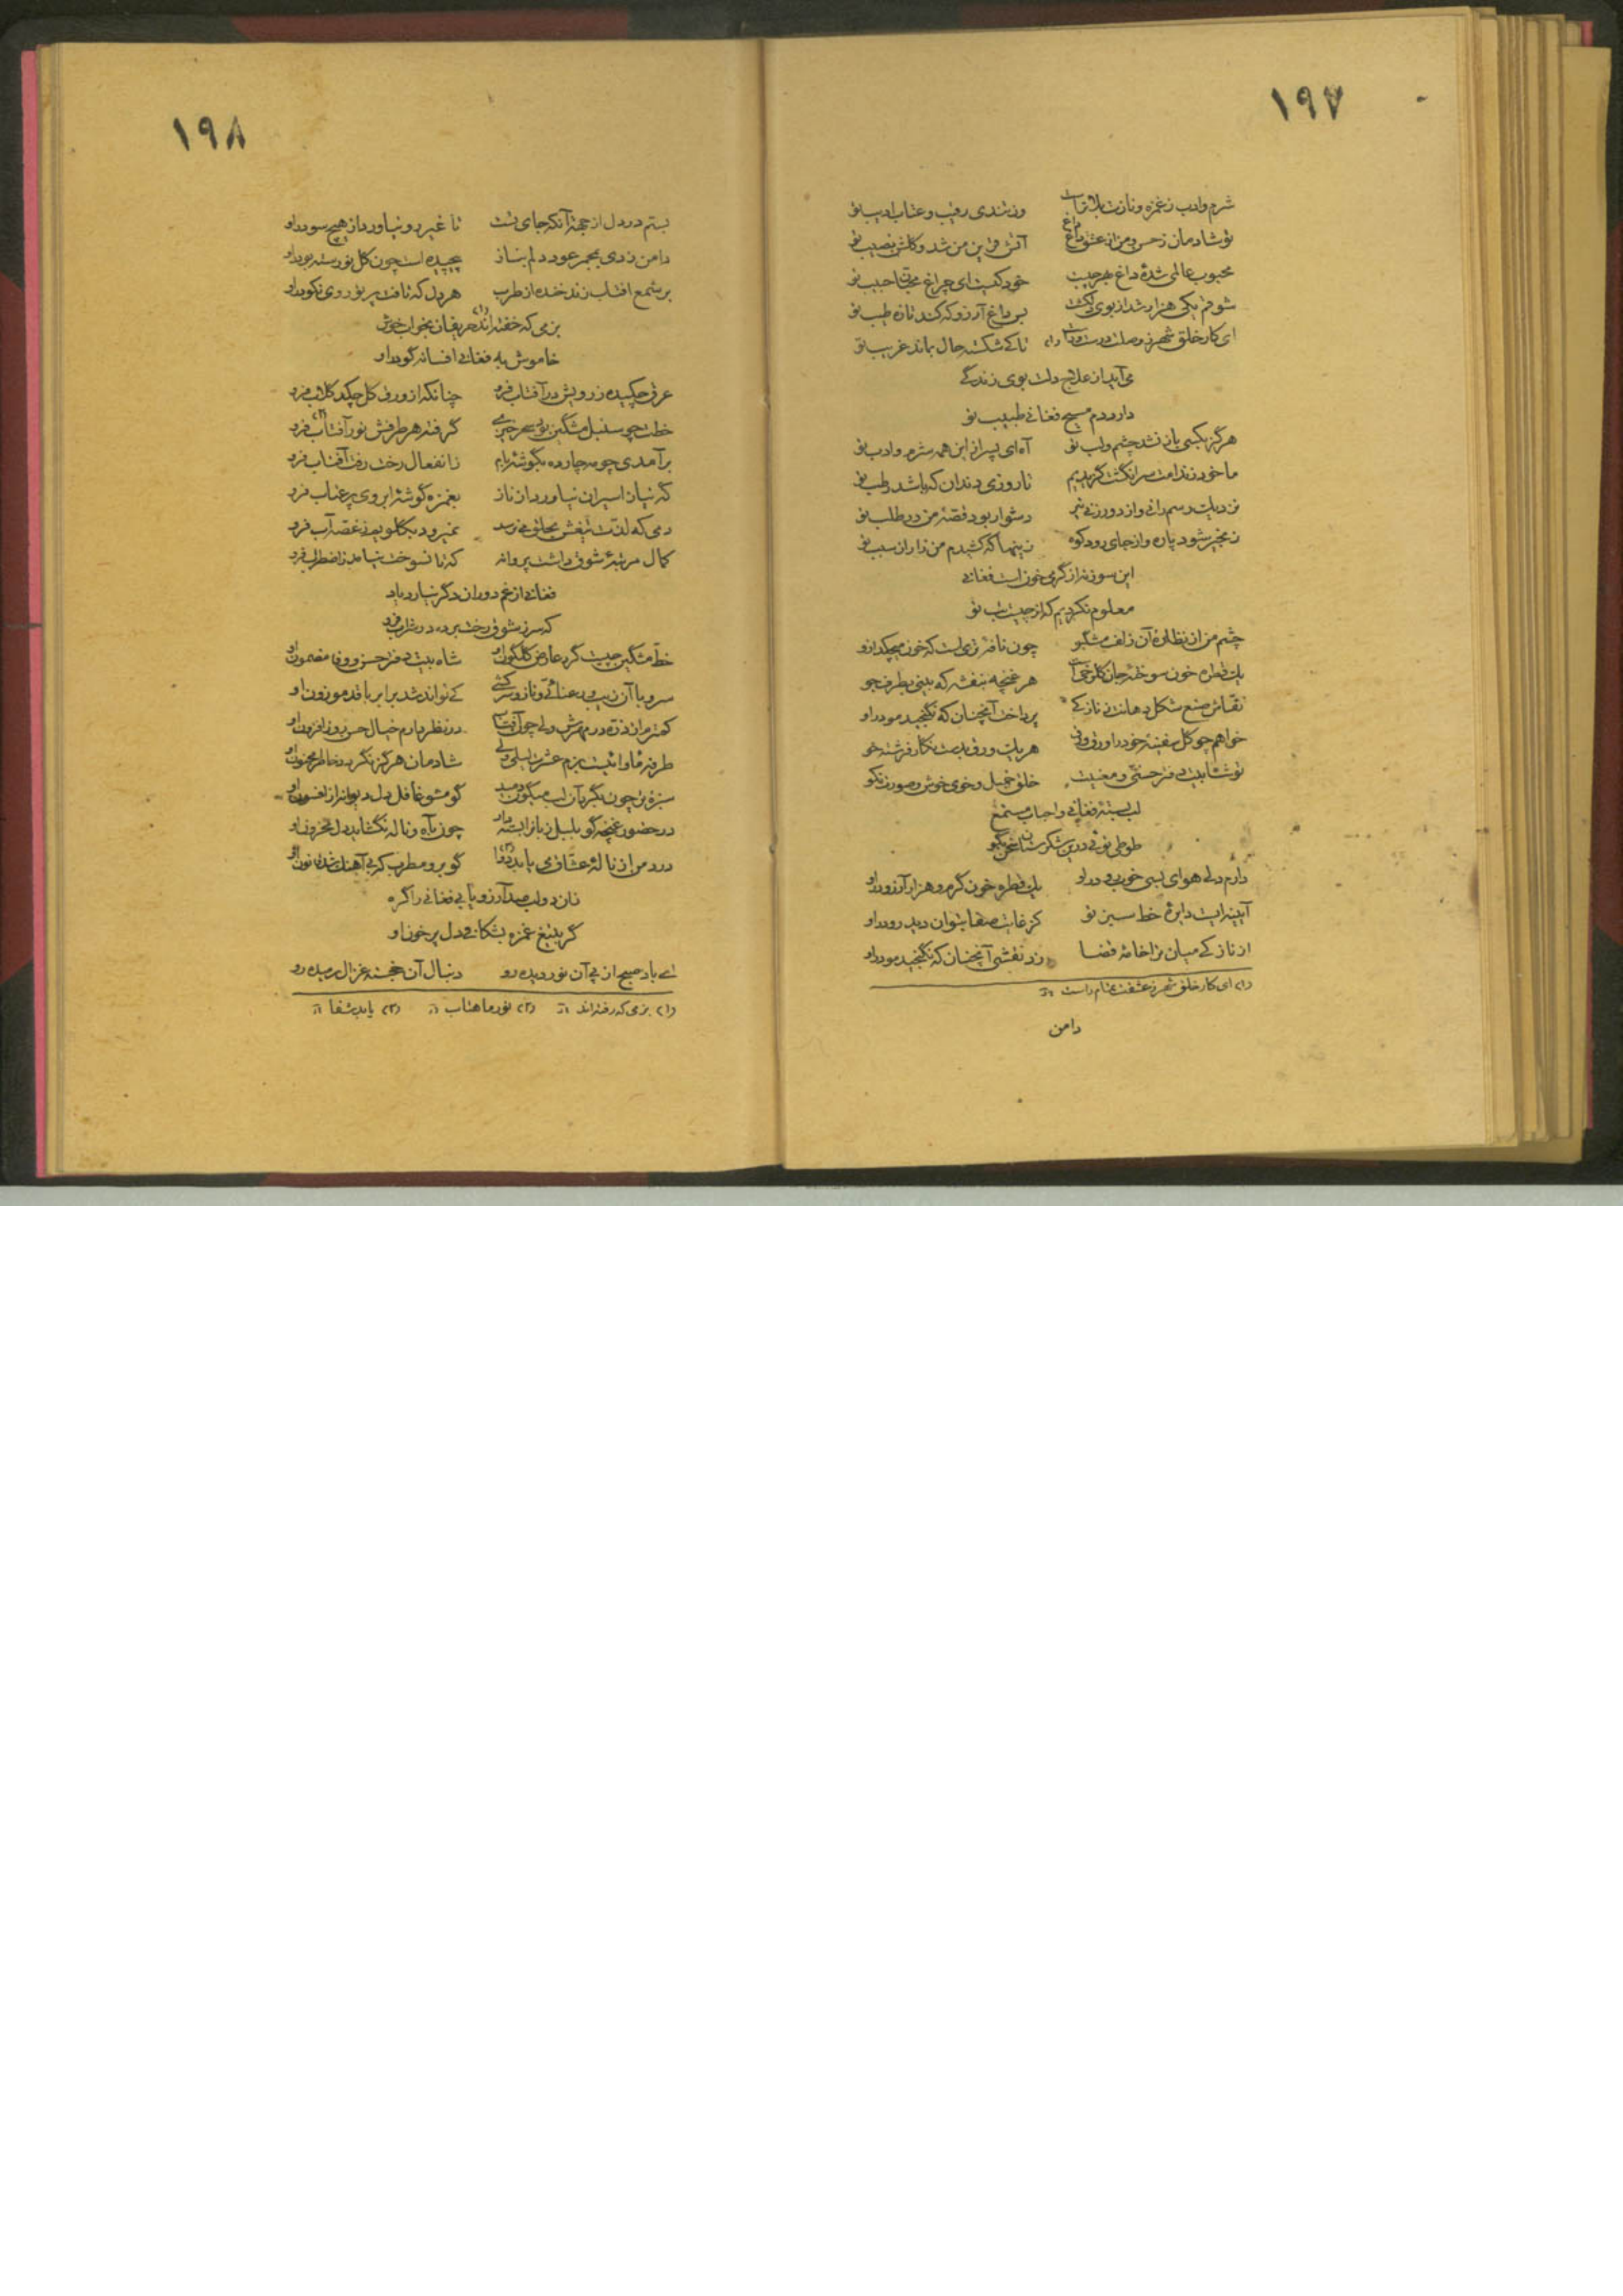 ۱۹۷
شرم و ادب ز غمزه و نازت بلا و تندی رقیب و عتاب ادیب تو
تو شادمان ز حسن و من از عشق داغ داغ آتش قرین من شد و گلشن نصیب تو
محبوب عالمی شدهٔ داغ بهر چیست خود کیست ای چراغ محبت حبیب تو
شوقم یکی هزار شد از بوی بر داغ آرزو که کند تازه طیب تو
ای کار خلق شهر ز وصلت درست و راست (۱) تا کی شکسته حال بماند غریب تو
می‌آید از علاج دلت بوی زندگی
دارد دم مسیح فغانی طبیب تو
هرگز بکسی باز نشد چشم و لب تو آه ای پسر از این همه شرم و ادب تو
ما خود ز ندامت سر انگشت گزیدیم تا روزی دندان که باشد رطب تو
دشوار بود قصهٔ من در طلب تو
زنجیر شود پاره و از جای رود کوه زینها که کشیدم من زار از سبب تو
این سوز نه از گرمی خون است فغانی
معلوم نکردیم که از چیست تب تو
چشم من از نظارهٔ آن زلف مشکبو چون نافهٔ تری است که خون میچکد ازو
یک قطره خون سوختهٔ جان گلرخی است هر غنچه بنفشه که بینی بطرف جو
نقاش صنع شکل دهانت ز نازکی پرداخت آنچنان که نگنجید مو درو
خواهم چو گل سفینهٔ خود را ورق ورق هر یک ورق بدست نگار فرشته خو
تو شاه بیت دفتر حسنی و معنیت خلق جمیل و خوی خوش و صورت نکو
لب بستهٔ فغانی و احباب مستمع
طوطی توئی درین شکرستان سخن بگو
دارم دلی هوای بسی خوبرو درو یک قطره خون گرم و هزار آرزو درو
آیینه ایست دایرهٔ خط سبز تو کز غایت صفا بتوان دید رو درو
از نازکی میان ترا خامهٔ قضا زد نقشی آنچنان که نگنجید مو درو
(۱) ای کار خلق شهر ز عشقت تمام راست
دامن
۱۹۸
بستم در دل از جهة آنکه جای تست تا غیر رو نیاورد از هیچ سو درو
دامن زدی بمجمر عود دلم بناز پیچیده است چون گل نورسته بو درو
بر شمع آفتاب زند خنده از طرب هر دل که تافت پرتو روی نکو درو
بزمی که خفته‌اند (۱) حریفان بخواب خوش
خاموش به فغانی افسانه گو درو
عرق چکیده ز رویش در آفتاب فرو چنانکه از ورق گل چکد گلاب فرو
خطت چو سنبل مشکین گرفته هر طرفش نور آفتاب (۲) فرو
برآمدی چو مه چارده بگوشهٔ بام ز انفعال رخت رفت آفتاب فرو
که نیاز اسیران نیاورد از ناز بغمزه گوشهٔ ابروی پر عتاب فرو
دمی که لذت تیغش بحلق می‌رسد نمیرود بگلویم ز غصه آب فرو
کمال مرتبهٔ شوق داشت پروانه که تا نسوخت نیامد ز اضطراب فرو
فغانی از غم دوران دگر نیارد یاد
که سر ز شوق رخت برده در شراب فرو
خط مشکین چیست گرد عارض گلگون او شاه بیت دفتر حسن و وفا مضمون او
سرو با آن زیب و رعنائی و ناز و سرکشی کی تواند شد برابر با قد موزون او
کمترم از ذره در مهرش ولی چون آفتاب در نظر دارم خیال حسن روز افزون او
طرفه مأوائیست بزم عشرت لیلی ولی شادمان هرگز نگردد خاطر محزون او
سبزهٔ تر چون بگرد آن لب میگون دمید گو مشو غافل دل دیوانه از افسون او
در حضور غنچه گو بلبل زبان را بسته دار چون به آه و ناله نگشاید دل محزون او
درد من از نالهٔ عشاق می‌یابد دوا (۳) گو برو مطرب که بی آهنگ شد قانون او
زان دو لب صد آرزو یابی فغانی را گره
گر بتیغ غمزه بشکافی دل پر خون او
ای باد صبح از پی آن نور دیده رو دنبال آن خجسته غزال رمیده رو
(۱) بزمی که رفته‌اند (۲) نور ماهتاب (۳) یابد شفا